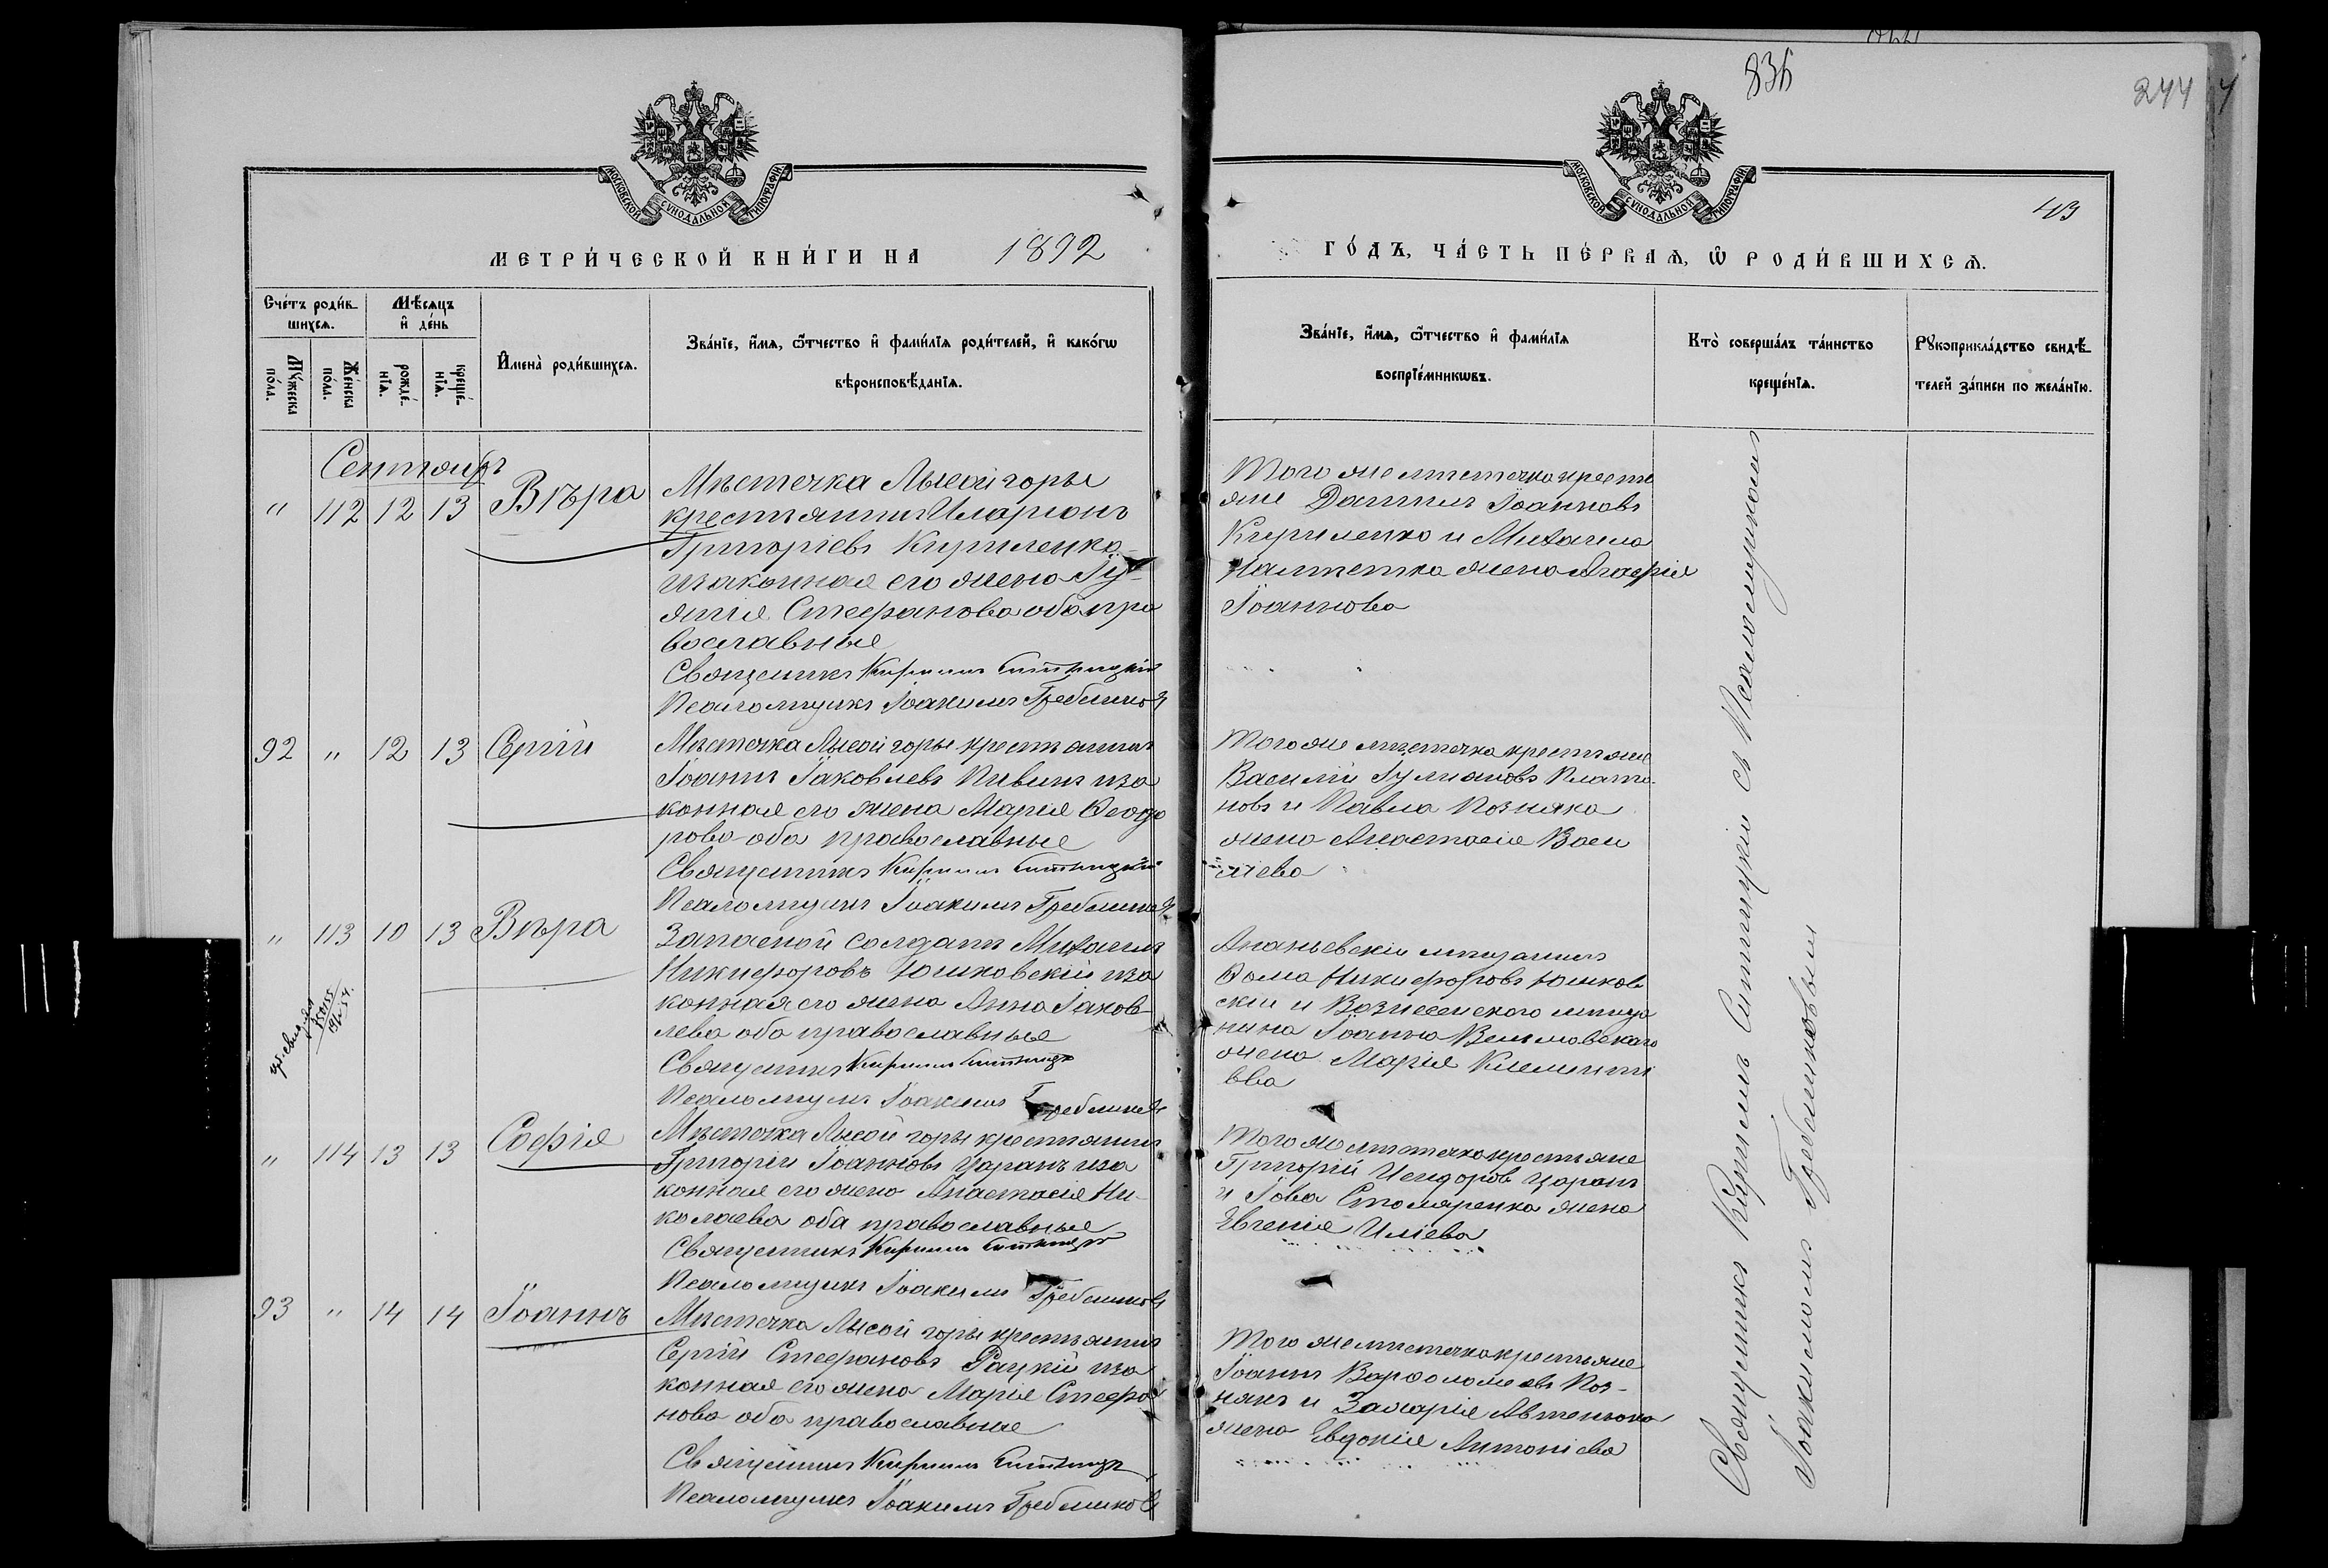 836
244
43
МОСКОВСКОЙ СѴНОДАЛЬНОЙ ТИПОГРАФІИ
МОСКОВСКОЙ СѴНОДАЛЬНОЙ ТИПОГРАФІИ
МЕТРИ́ЧЕСКОЙ КНИ́ГИ НА 1892
ГО́ДЪ, ЧА́СТЬ ПЕ́РВАѦ, Ѡ҆ РОДИ́ВШИХСѦ.
Сче́тъ роди́в-
шихсѧ.
Мꙋ́жеска
по́ла.
Же́нска
по́ла.
Мѣ́сѧцъ
и҆ де́нь
рожде́-
нїѧ.
креще́-
нїѧ.
И҆мена̀ роди́вшихсѧ.
Зва́нїе, и҆́мѧ, ѻ҆́тчество и҆ фами́лїѧ роди́телей, и҆ како́гѡ
вѣроисповѣ́данїѧ.
Зва́нїе, и҆́мѧ, ѻ҆́тчество и҆ фами́лїѧ
воспрїе́мникѡвъ.
Кто̀ соверша́лъ та́инство
креще́нїѧ.
Рꙋкоприкла́дство свидѣ́-
телей за́писи по жела́нїю.
Сентябрь
" 112 12 13 Вѣра
Мѣстечка Лысой горы
крестьянинъ Иларіонъ
Григоріевъ Кириленко
и законная его жена Іу-
лянія Стефанова оба пра
вославные
Священникъ Кириллъ Ситницкій
Псаломщикъ Іоакимъ Гребениковъ
Того же мѣстечка крестья
яне Даніилъ Іоанновъ
Кириленко и Михаила
жена Агафія
Іоаннова
92 " 12 13 Сергій
Мѣстечка Лысой горы крестьянинъ
Іоаннъ Іаковлевъ Пивинъ и за
конная его жена Марія Ѳеодо
рова оба православные
Священникъ Кириллъ Ситницкій
Псаломщикъ Іоакимъ Гребениковъ
Того же мѣстечка крестьяне
Василій Іуліановъ Плато-
новъ и Павла Позняка
жена Анастасія Васи
ліева
" 113 10 13 Вѣра
Запасной солдатъ Михаилъ
Никифоровъ Юшковскій и за
конная его жена Анна Іаков-
лева оба православные
Священникъ Кириллъ Ситницкій
Псаломщикъ Іоакимъ Гребениковъ
Ананьевскій мѣщанинъ
Ѳома Никифоровъ Юшков
скій и Вознесенского мѣща
нина Іоанна
жена Марія Климентi
ева
" 114 13 13 Софія
Мѣстечка Лысой горы крестьянинъ
Григорій Іоанновъ Царанъ и за
конная его жена Анастасія Ни-
колаева оба православные
Священникъ Кириллъ Ситницкій
Псаломщикъ Іоакимъ Гребениковъ
Того же мѣстечка крестьяне
Григорій Исидоровъ Царанъ
и Іова Столяренка жена
Евгенія Иліева
93 " 14 14 Іоаннъ
Мѣстечка Лысой горы крестьянинъ
Сергій Стефановъ Рацкій и за
конная его жена Марія Стефа
нова оба православные
Священникъ Кириллъ Ситницкій
Псаломщикъ Іоакимъ Гребениковъ
Того же мѣстечка крестьяне
Іоаннъ Варѳоломеевъ Поз-
някъ и Захарія
жена Евдокія Антоніева
Священникъ Кириллъ Ситницкій съ Псаломщикомъ
Іоакимомъ Гребениковымъ